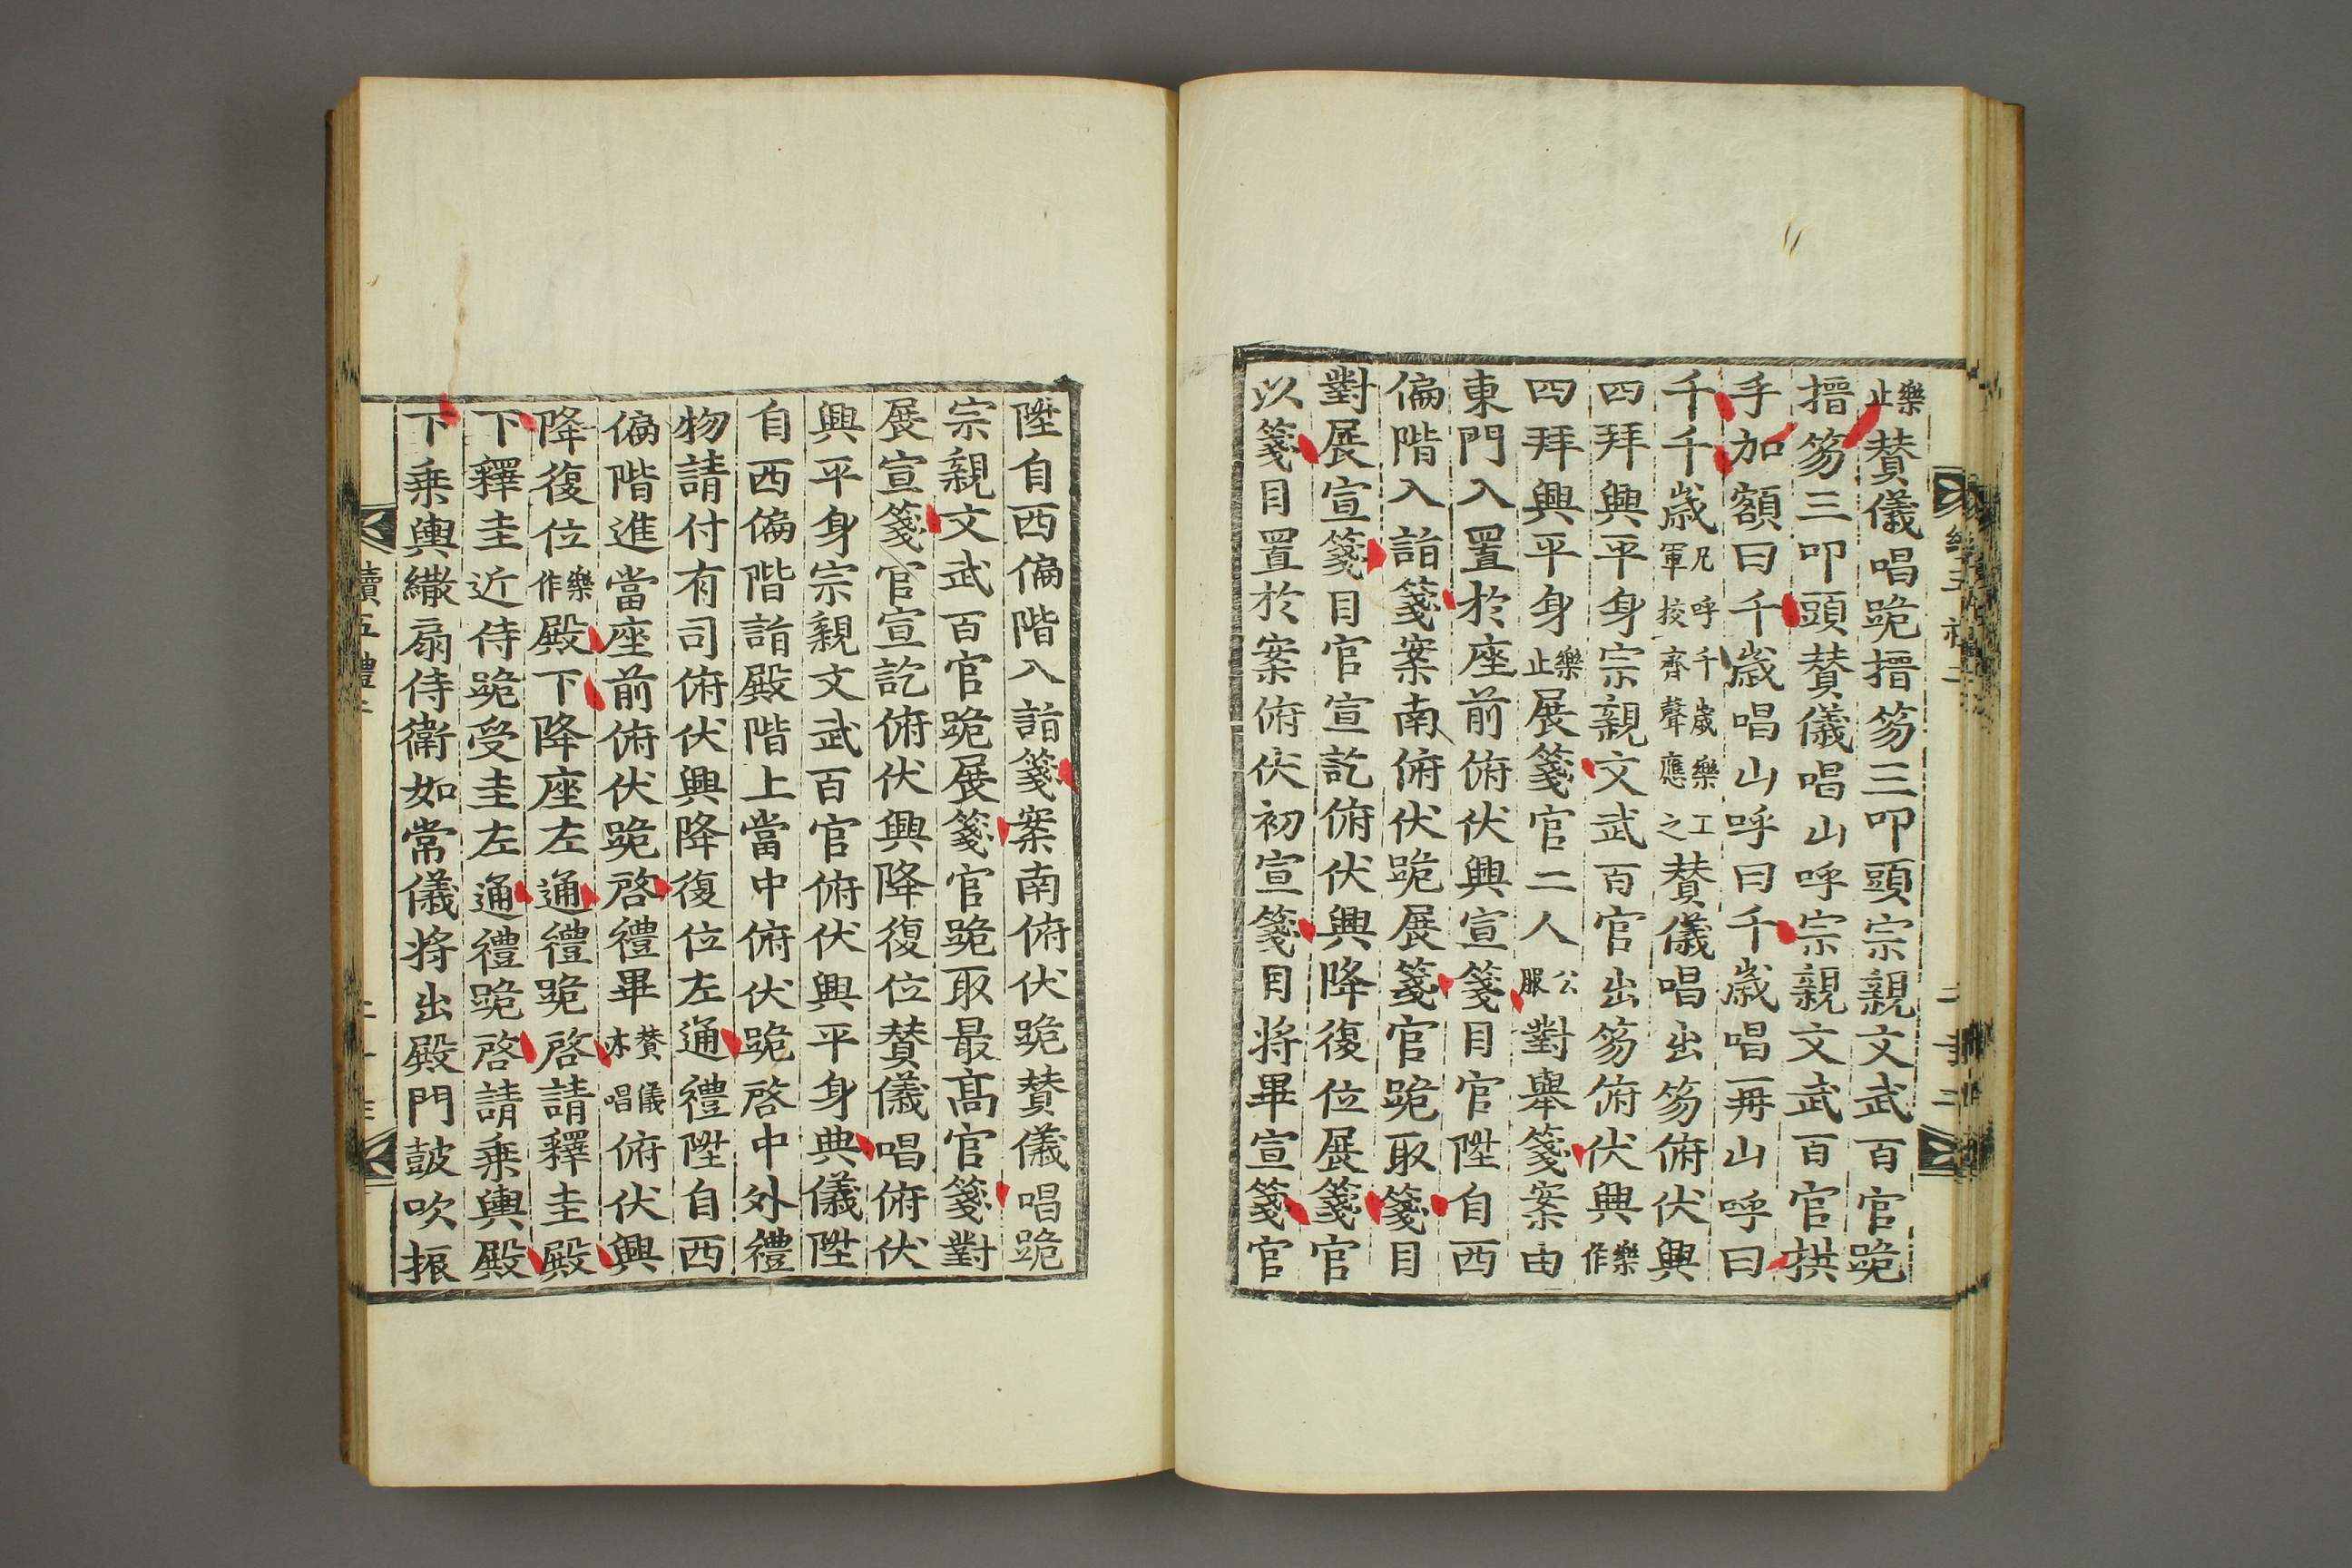 樂止贊儀唱跪搢笏三叩頭宗親文武百官跪
搢笏三叩頭贊儀唱山呼宗親文武百官拱
手加額曰千歲唱山呼曰千歲唱再山呼曰
千千歲凡呼千歲樂工軍校齊聲應之贊儀唱出笏俯伏興
四拜興平身宗親文武百官出笏俯伏興樂作
四拜興平身樂止展箋官二人公服對舉箋案由
東門入置於座前俯伏興宣箋目官陞自西
偏階入詣箋案南俯伏跪展箋官跪取箋目
對展宣箋目官宣訖俯伏興降復位展箋官
以箋目置於案俯伏初宣箋目將畢宣箋官
陞自西偏階入詣箋案南俯伏跪贊儀唱跪
宗親文武百官跪展箋官跪取最高官箋對
展宣箋官宣訖俯伏興降復位贊儀唱俯伏
興平身宗親文武百官俯伏興平身典儀陞
自西偏階詣殿階上當中俯伏跪啓中外禮
物請付有司俯伏興降復位左通禮陞自西
偏階進當座前俯伏跪啓禮畢贊儀亦唱俯伏興
降復位樂作殿下降座左通禮跪啓請釋圭殿
下釋圭近侍跪受圭左通禮跪啓請乘輿殿
下乘輿繖扇侍衛如常儀將出殿門鼓吹振
續五禮二